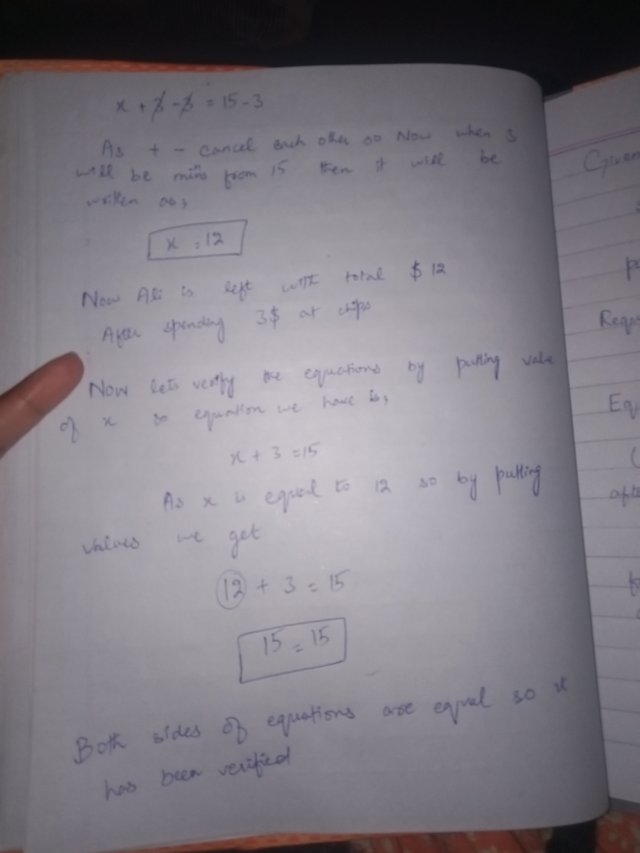 x + 3 - 3 = 15 - 3
As + - cancel each other so Now when 3
will be mins from 15 then it will be
written as,
x = 12
Now Ali is left with total $ 12
After spending 3$ at chips
Now lets verify the equations by putting value
of x so equation we have is,
x + 3 = 15
As x is equal to 12 so by putting
values we get
12 + 3 = 15
15 = 15
Both sides of equations are equal so it
has been verified
Given
Requ
Eq
afte